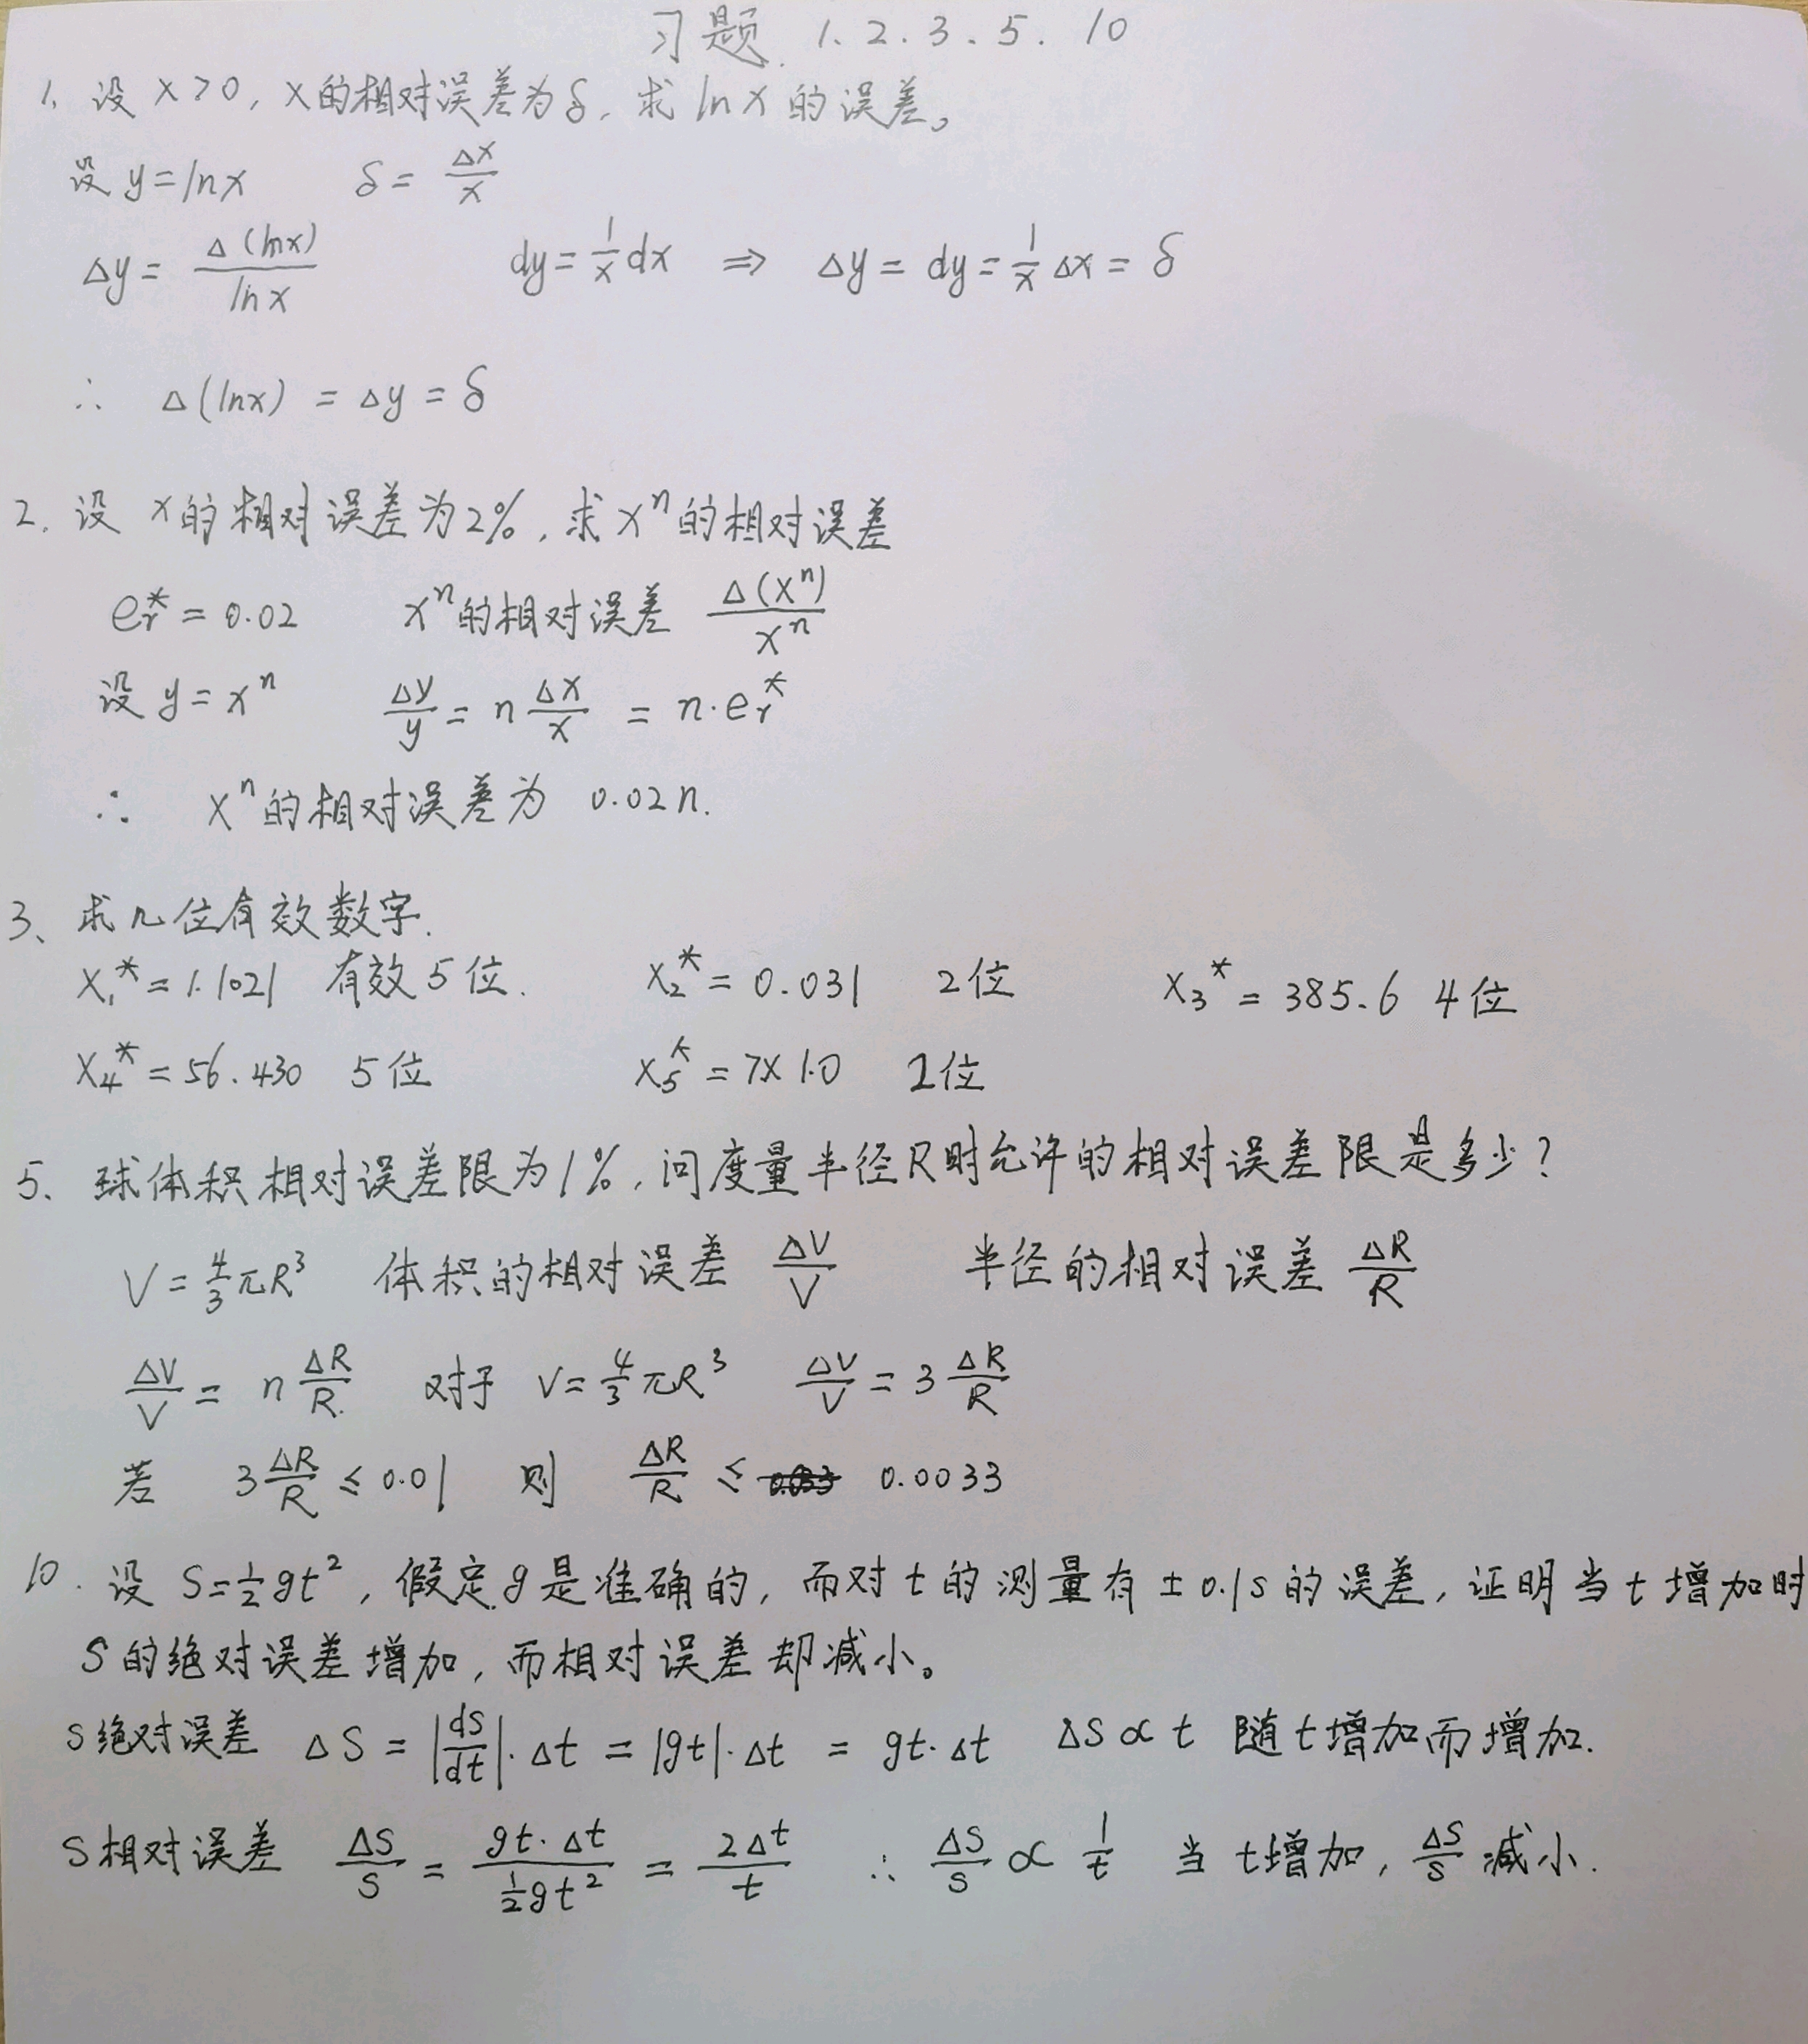 习题. 1. 2. 3. 5. 10
1. 设 x>0, x的相对误差为δ, 求 ln x 的误差。
设 y=lnx δ= Δx/x
Δy= Δ(lnx)/lnx dy=1/x dx ⇒ Δy= dy=1/x Δx= δ
∴ Δ(lnx) = Δy = δ
2. 设 x的相对误差为2%, 求xⁿ的相对误差
eᵣ* = 0.02 xⁿ的相对误差 Δ(xⁿ)/xⁿ
设 y=xⁿ Δy/y = n Δx/x = n·eᵣ*
∴ xⁿ的相对误差为 0.02n.
3、求几位有效数字.
x₁*=1.1021 有效5位. x₂* = 0.031 2位 x₃* = 385.6 4位
x₄* =56.430 5位 x₅* = 7×1.0 2位
5、球体积相对误差限为1%, 问度量半径R时允许的相对误差限是多少?
V=4/3πR³ 体积的相对误差 ΔV/V 半径的相对误差 ΔR/R
ΔV/V = n ΔR/R. 对于 V=4/3πR³ ΔV/V = 3 ΔR/R
若 3ΔR/R ≤ 0.01 则 ΔR/R ≤ 0.0033
10. 设 S=½gt², 假定g是准确的, 而对t的测量有±0.1s的误差, 证明当t增加时
S的绝对误差增加, 而相对误差却减小。
S绝对误差 ΔS = |ds/dt|·Δt = |gt|·Δt = gt·Δt ΔS∝t 随t增加而增加.
S相对误差 ΔS/S = gt·Δt/½gt² = 2Δt/t ∴ ΔS/S ∝ 1/t 当t增加, ΔS/S 减小.